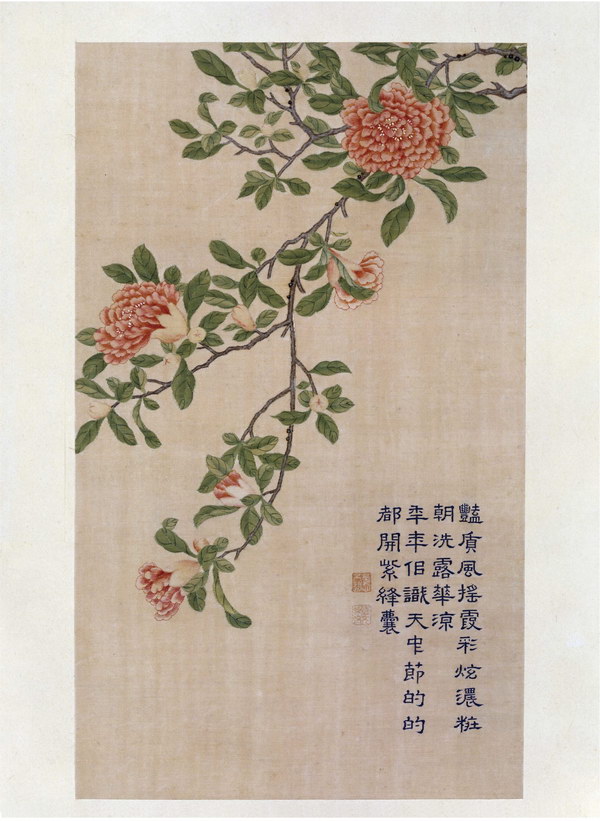 豔質風搖霞彩炫濃粧
朝洗露華涼
年年但識天中節的的
都開紫絳囊